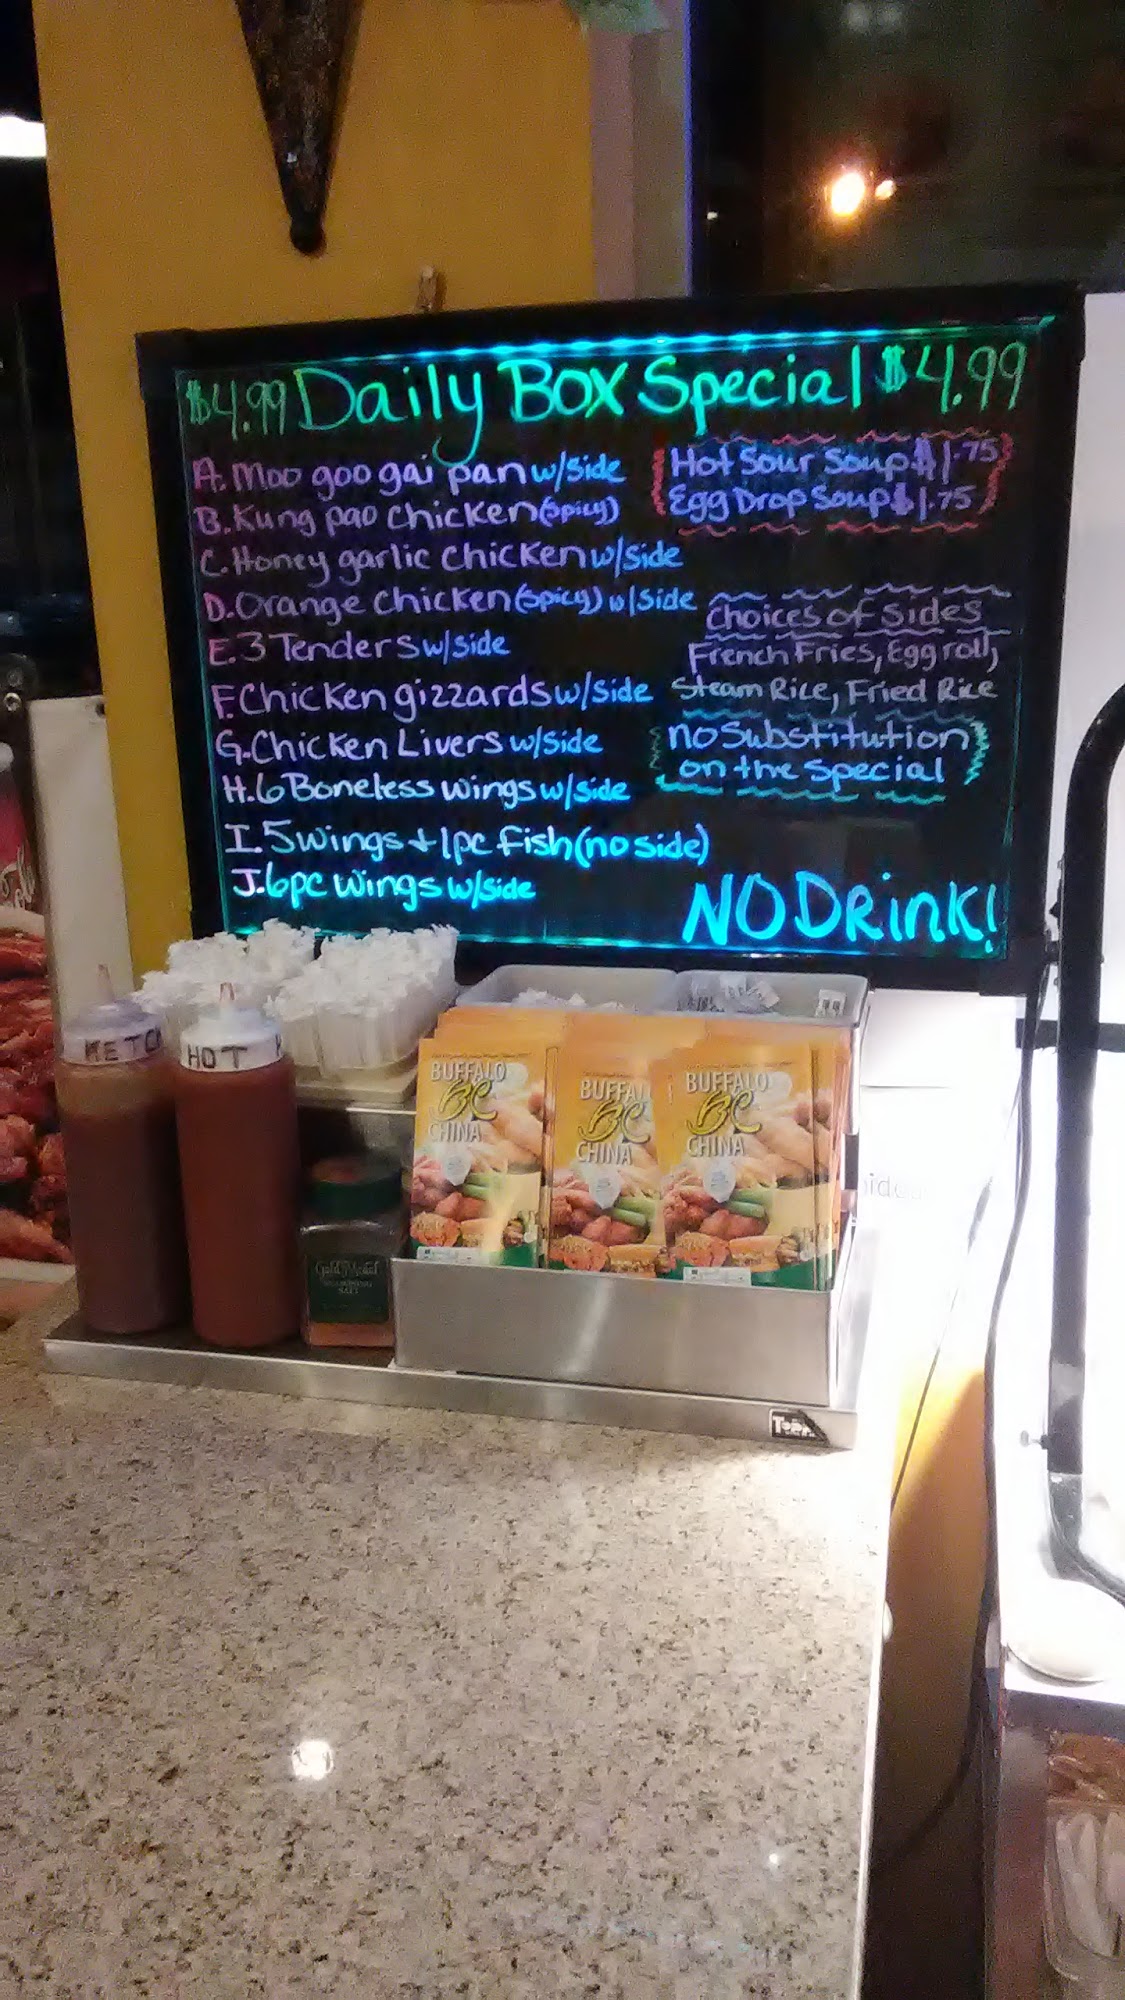 $4.99 Daily Box Special $4.99
A. Moo goo gai pan w/side
B. Kung pao chicken (spicy)
C. Honey garlic chicken w/side
D. Orange chicken (spicy) w/side
E. 3 Tenders w/side
F. Chicken gizzards w/side
G. Chicken Livers w/side
H. 6 Boneless wings w/side
I. 5 wings + 1pc fish (no side)
J. 6pc wings w/side
Hot Sour Soup $1.75
Egg Drop Soup $1.75
Choices of Sides
French Fries, Egg roll,
Steam Rice, Fried Rice
no Substitution
on the Special
NO DRink!
KETC
HOT
BUFFALO
BC
CHINA
BUFFAL
BC
CHINA
BUFFALO
BC
CHINA
Gold Medal
SALT